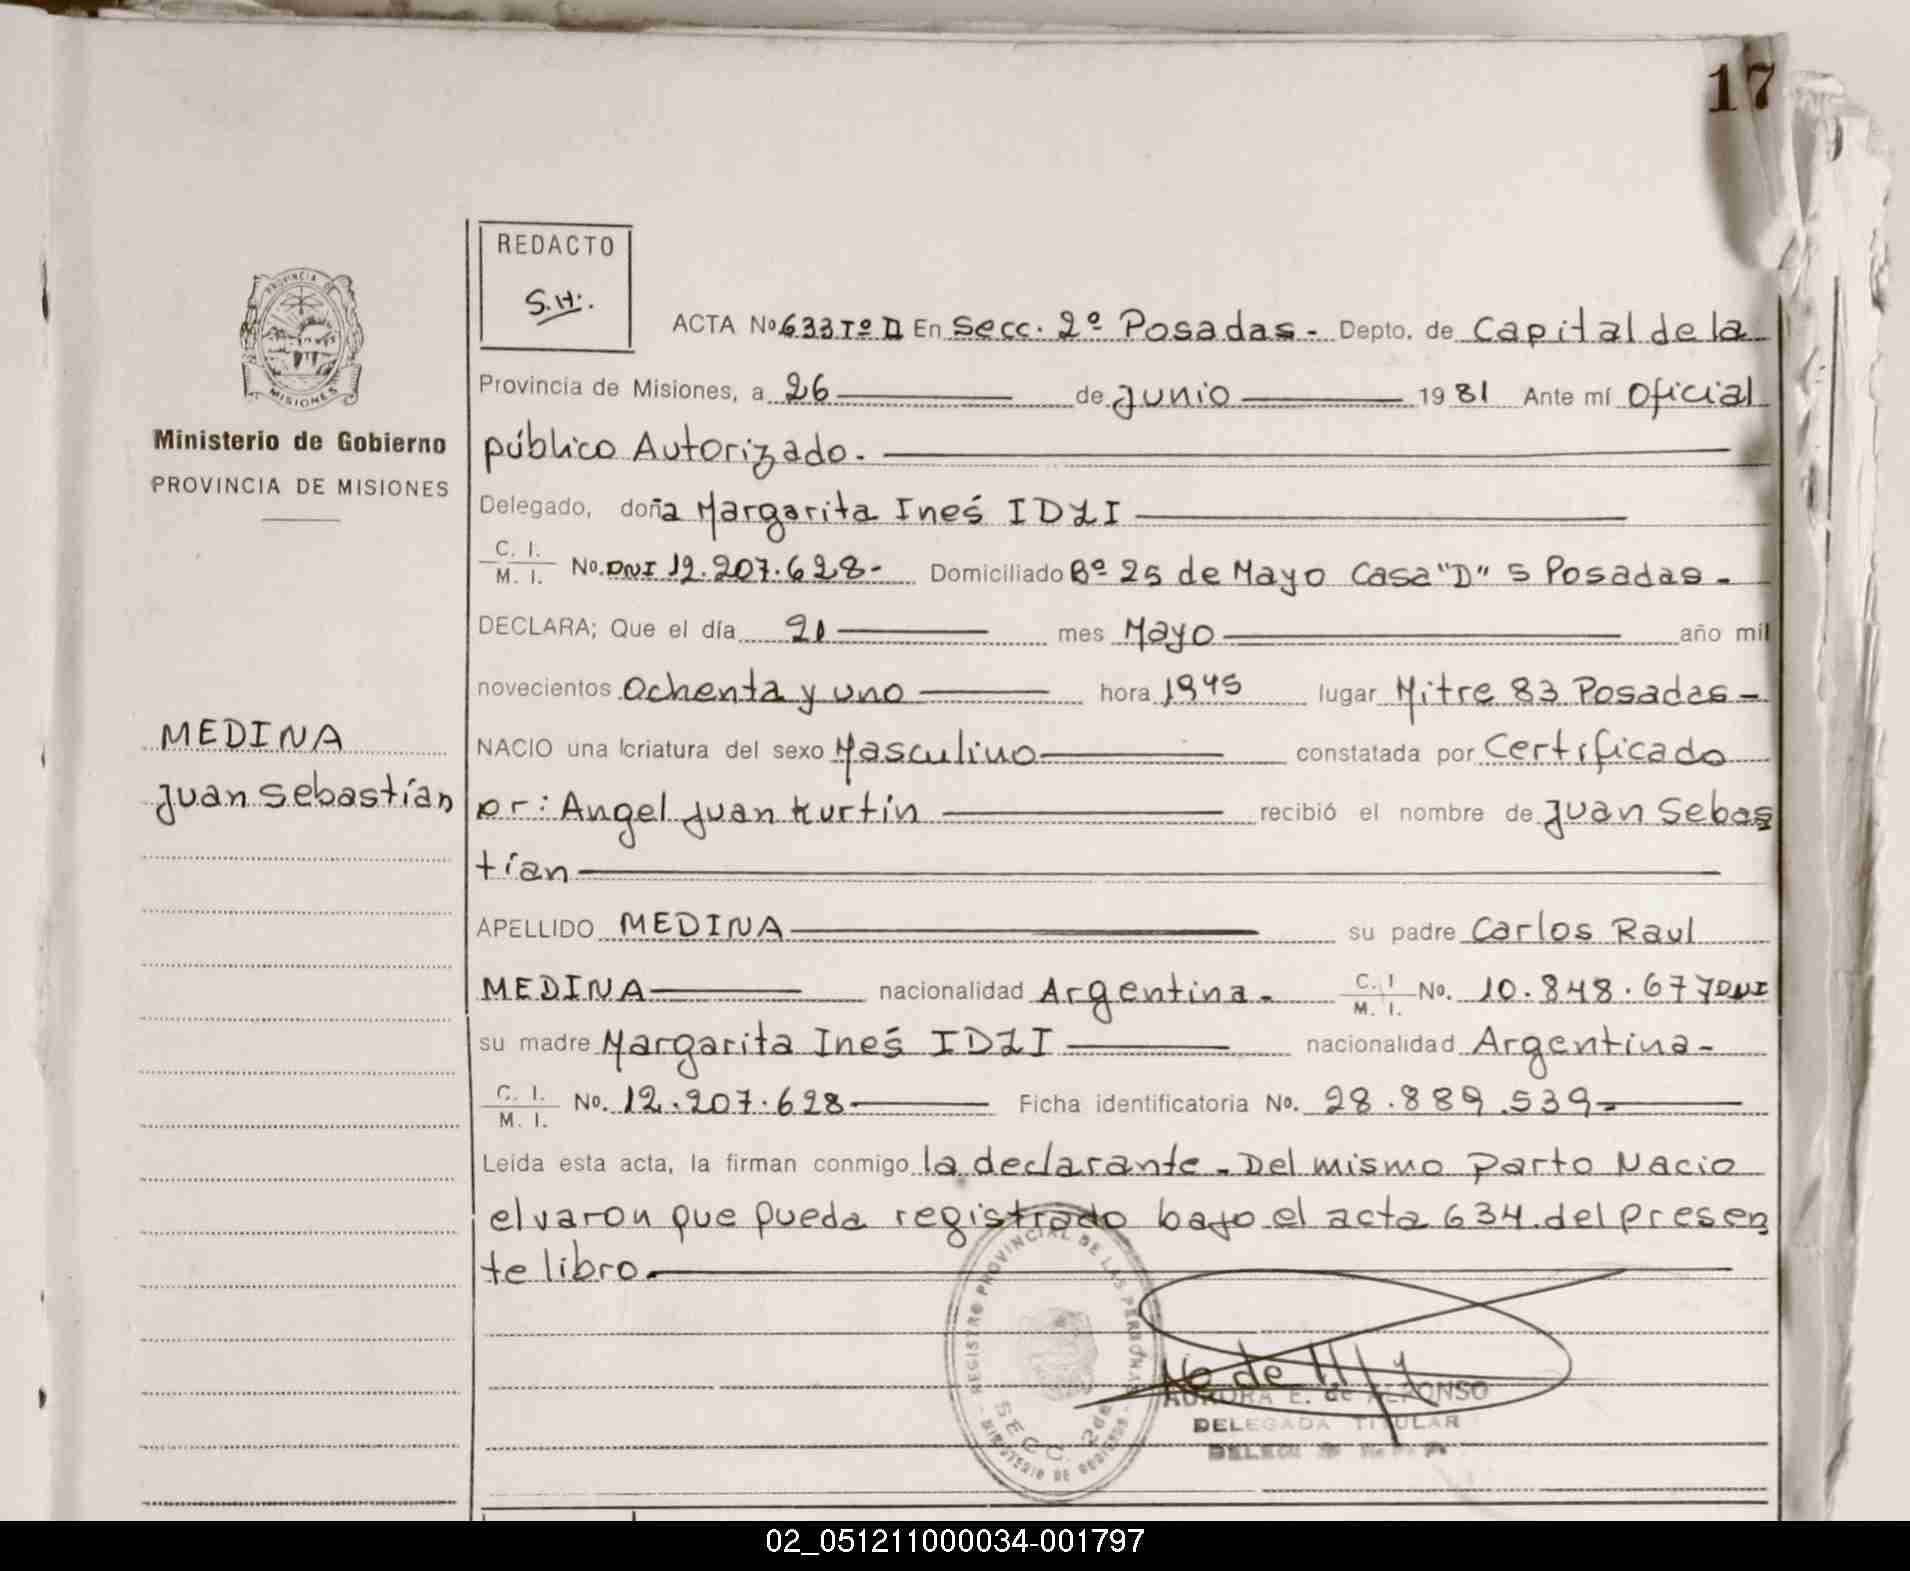 17
REDACTO
S.H.
PROVINCIA DE
MISIONES
Ministerio de Gobierno
PROVINCIA DE MISIONES
MEDINA
Juan Sebastían
ACTA No 633 Tº II En Secc. 2º Posadas - Depto. de Capital de la
Provincia de Misiones, a 26 de Junio 1981 Ante mí Oficial
público Autorizado.
Delegado, doña Margarita Inés IDZI
C. I. M. I. No. DNI 12.207.628- Domiciliado Bº 25 de Mayo Casa "D" 5 Posadas -
DECLARA; Que el día 21 mes Mayo año mil
novecientos Ochenta y uno hora 1945 lugar Mitre 83 Posadas -
NACIO una criatura del sexo Masculino constatada por Certificado
por: Angel Juan Kurtin recibió el nombre de Juan Sebas
tían
APELLIDO MEDINA su padre Carlos Raul
MEDINA nacionalidad Argentina - C. I. M. I. No. 10.848.677 DNI
su madre Margarita Inés IDZI nacionalidad Argentina -
C. I. M. I. No. 12.207.628 Ficha identificatoria No. 28.889.539-
Leída esta acta, la firman conmigo la declarante - Del mismo Parto Nacio
el varon que pueda registrado bajo el acta 634 del presen
te libro.
REGISTRO PROVINCIAL DE LAS PERSONAS
SECC. 2da
MINISTERIO DE GOBIERNO
AURORA E. de ALFONSO
DELEGADA TITULAR
02_051211000034-001797